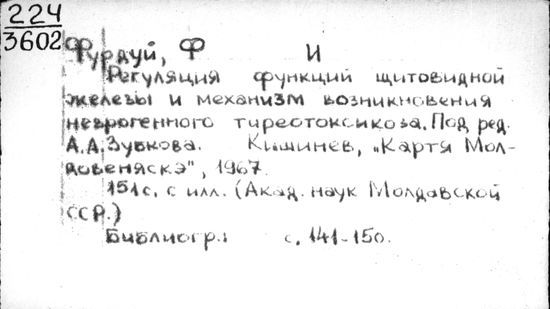 224
3602
Фурдуй, Ф И
Регуляция функций щитовидной
железы и механизм возникновения
неврогенного тиреотоксикоза. Под ред.
А.А.Зубкова. Кишинев, „Картя Мол-
довеняскэ", 1967.
151 с. с илл. (Акад. наук Молдавской
ССР.)
Библиогр.: с. 141-150.